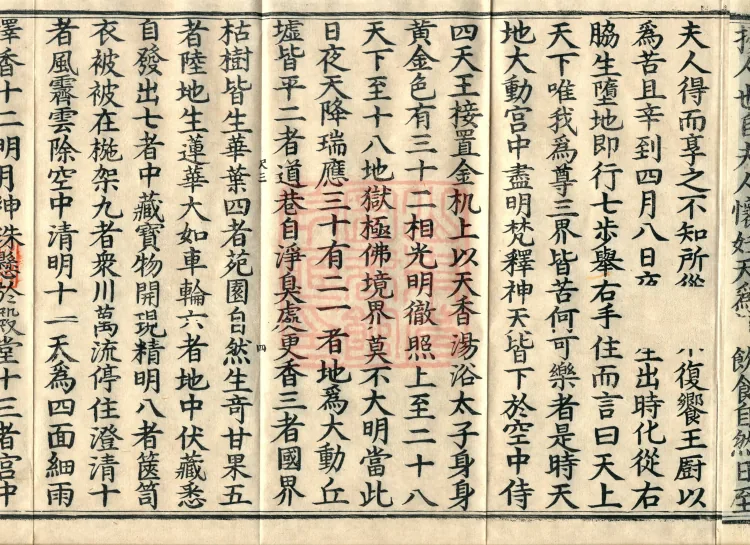 人也自夫人懷妊天為 飲食自然日至
夫人得而享之不知所從 不復饗王厨以
為苦且辛到四月八日 出時化從右
脇生墮地即行七步舉右手住而言曰天上
天下唯我為尊三界皆苦何可樂者是時天
地大動宮中盡明梵釋神天皆下於空中侍
四天王接置金机上以天香湯浴太子身身
黄金色有三十二相光明徹照上至二十八
天下至十八地獄極佛境界莫不大明當此
日夜天降瑞應三十有二一者地為大動丘
墟皆平二者道巷自淨臭處更香三者國界
四
枯樹皆生華葉四者苑園自然生奇甘果五
者陸地生蓮華大如車輪六者地中伏藏悉
自發出七者中藏寶物開現精明八者篋笥
衣被被在椸架九者衆川萬流停住澄清十
者風霽雲除空中清明十一天為四面細雨
澤香十二明月神珠懸於殿堂十三者宮中